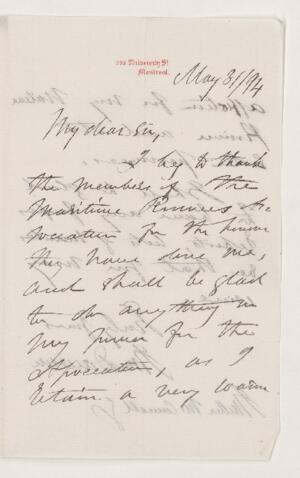 University St
Montreal.
May 31/94
My dear Sir,
I beg to thank
the members of the
Maritime Provinces As-
sociation for the honour
they have done me,
and shall be glad
to do anything in
my power for the
Association, as I
retain a very warm